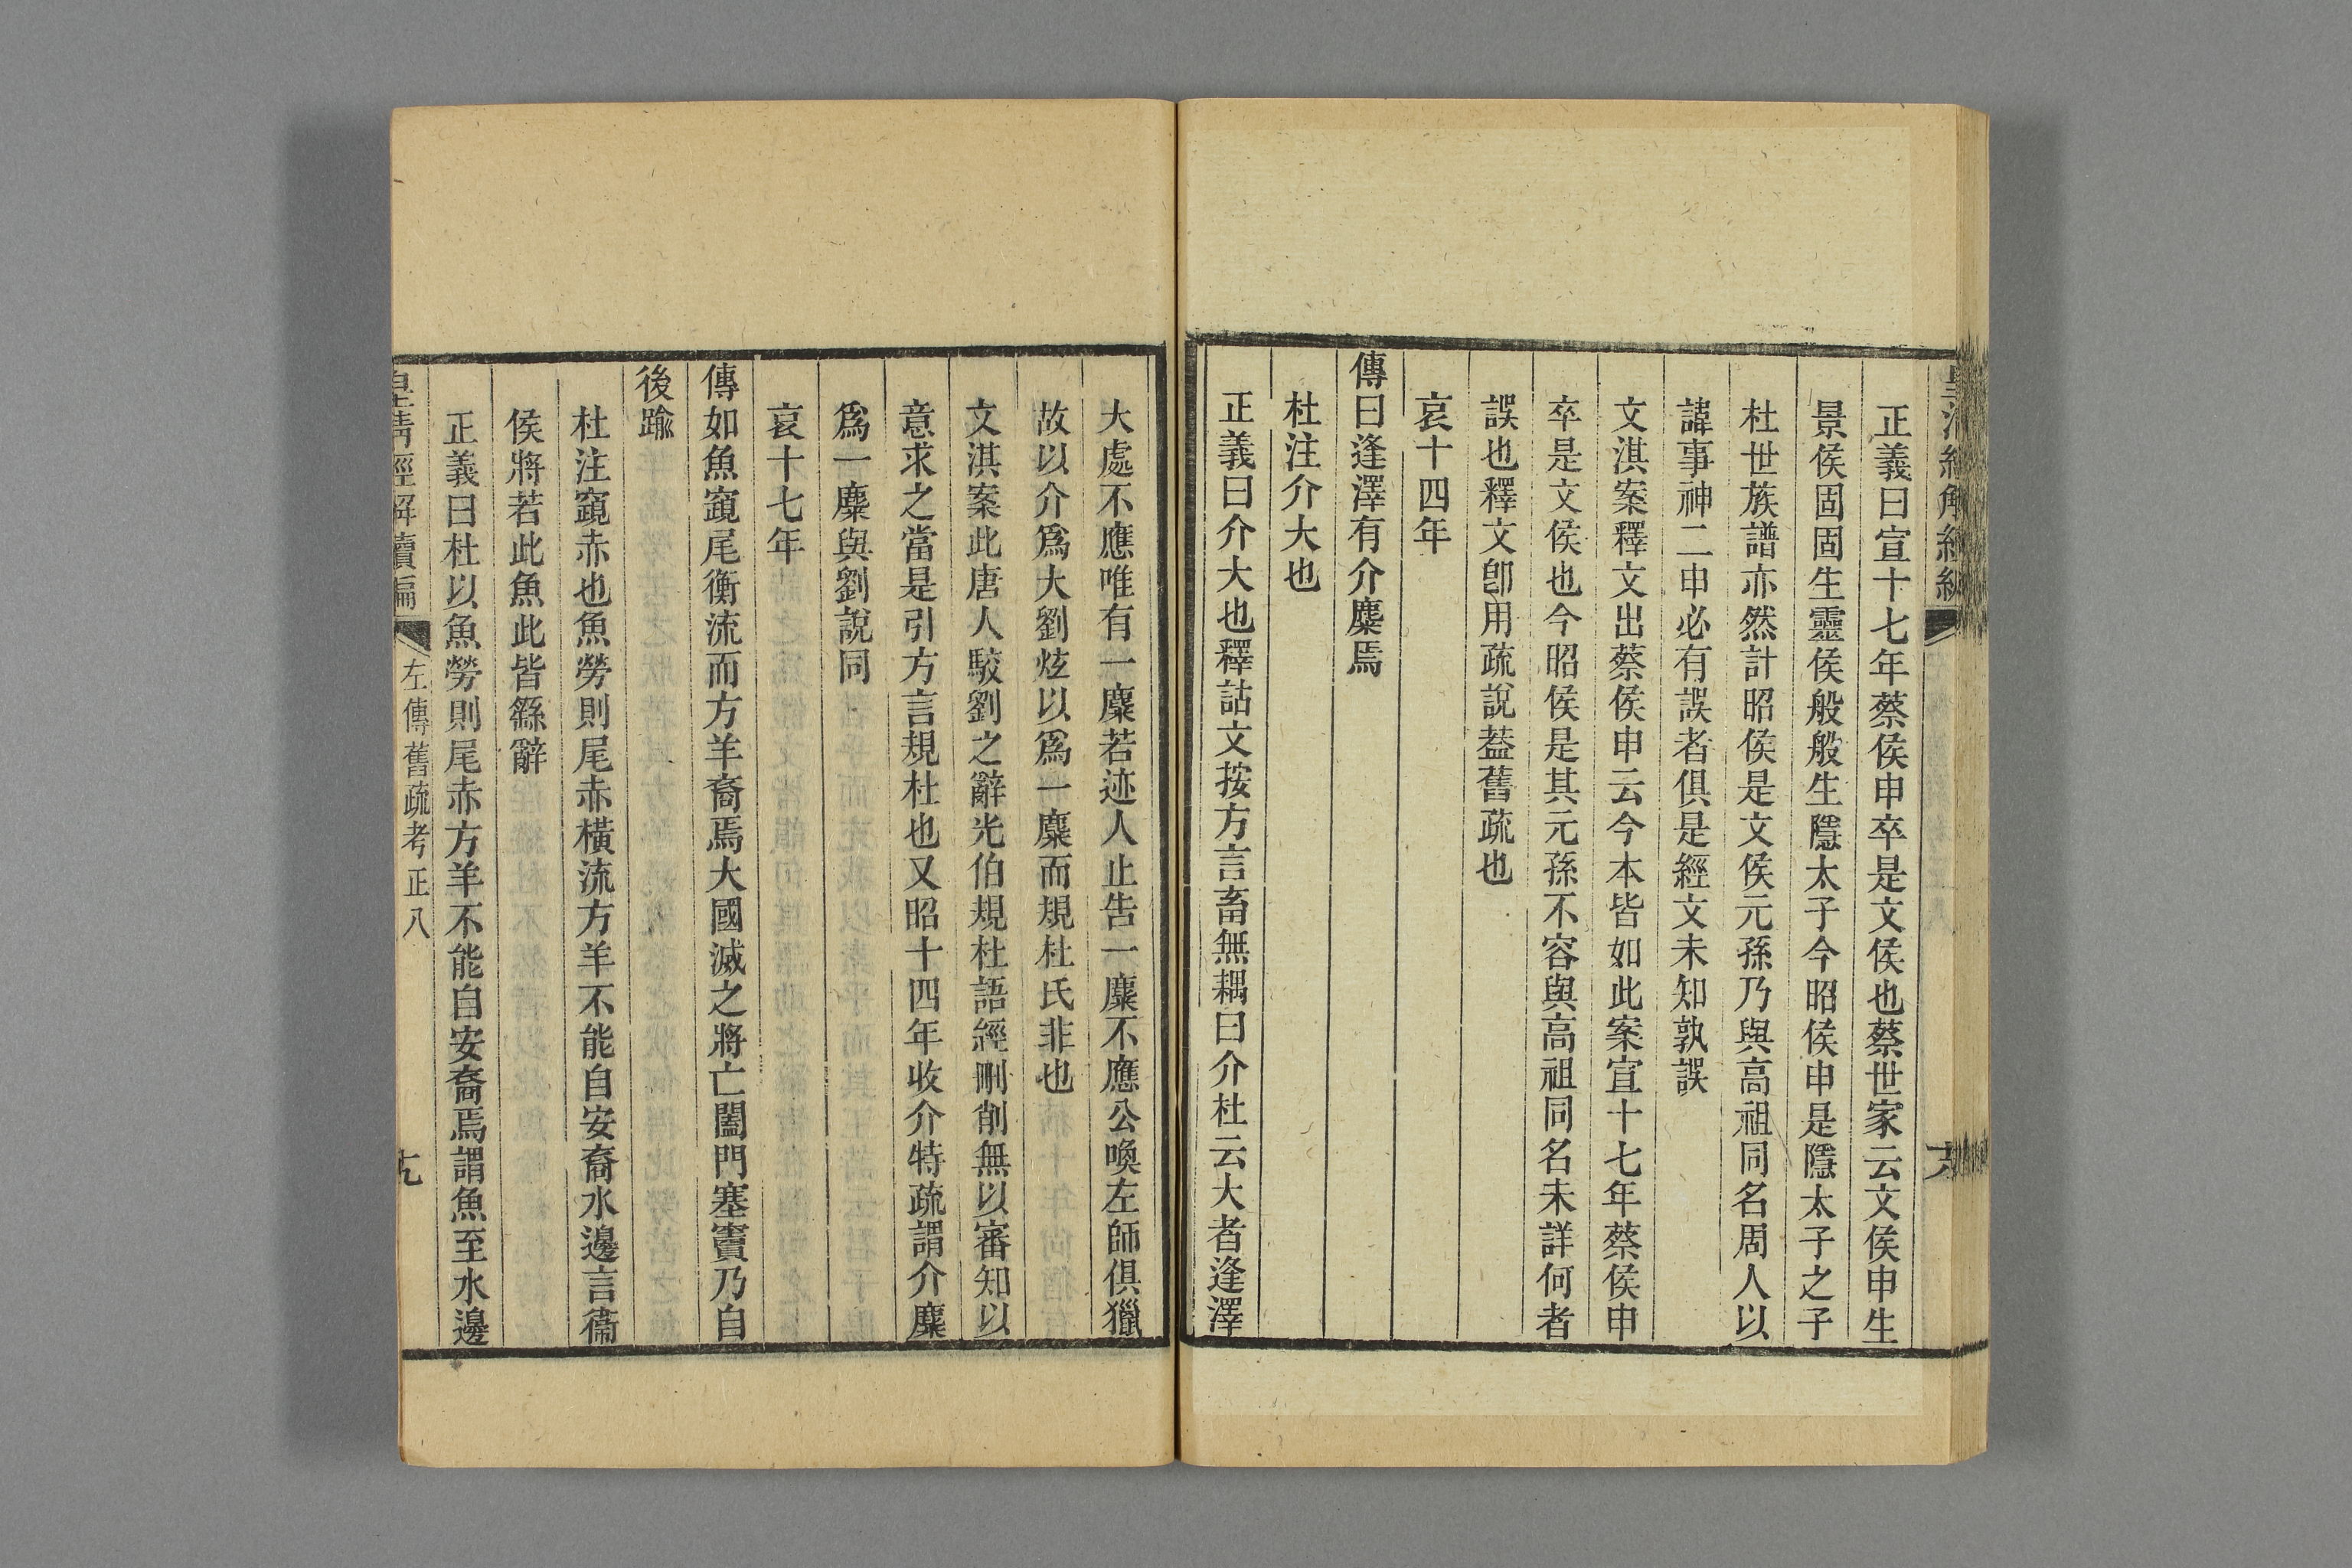 正義曰宣十七年蔡侯申卒是文侯也蔡世家云文侯申生
景侯固固生靈侯般般生隱太子今昭侯申是隱太子之子
杜世族譜亦然計昭侯是文侯元孫乃與高祖同名周人以
諱事神二申必有誤者俱是經文未知孰誤
文淇案釋文出蔡侯申云今本皆如此案宣十七年蔡侯申
卒是文侯也今昭侯是其元孫不容與高祖同名未詳何者
誤也釋文卽用疏說葢舊疏也
哀十四年
傳曰逢澤有介麋焉
杜注介大也
正義曰介大也釋詁文按方言畜無耦曰介杜云大者逢澤
大處不應唯有一麋若迹人止告一麋不應公喚左師俱獵
故以介爲大劉炫以爲一麋而規杜氏非也
文淇案此唐人駮劉之辭光伯規杜語經刪削無以審知以
意求之當是引方言規杜也又昭十四年收介特疏謂介麋
爲一麋與劉說同
哀十七年
傳如魚竀尾衡流而方羊裔焉大國滅之將亡闔門塞竇乃自
後踰
杜注竀赤也魚勞則尾赤橫流方羊不能自安裔水邊言衞
侯將若此魚此皆繇辭
正義曰杜以魚勞則尾赤方羊不能自安裔焉謂魚至水邊
皇清經解續編
左傳舊疏考正八
九